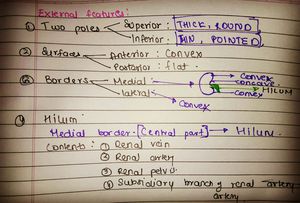 External features:
① Two poles Superior : THICK, ROUND
Inferior : THIN, POINTED
② Surfaces Anterior : Convex
Posterior : flat.
③ Borders Medial Convex
concave HILUM
convex
lateral Convex
④ Hilum:
Medial border- [Central part] → Hilum.
Contents: ① Renal vein
② Renal artery
③ Renal pelvis
④ Subsidiary branch renal artery
artery